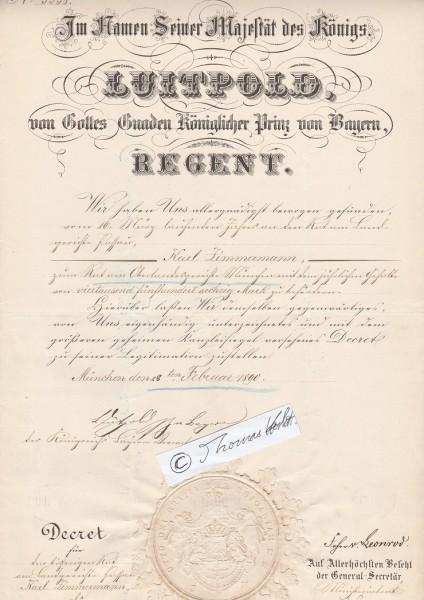 Im Namen Seiner Majestät des Königs.
LUITPOLD,
von Gottes Gnaden Königlicher Prinz von Bayern,
REGENT.
Wir haben Uns allergnädigst bewogen gefunden,
vom 16. März laufenden Jahres an den Rat am Land-
gerichte Passau,
Karl Zimmermann,
zum Rat am Oberlandesgerichte München mit dem jährlichen Gehalte
von viertausend fünfhundert sechzig Mark zu befördern.
Hierüber laßen Wir demselben gegenwärtiges,
von Uns eigenhändig unterzeichnetes und mit dem
größeren geheimen Kanzleisiegel versehenes Decret
zu seiner Legitimation zustellen.
München den 28ten Februar 1890.
Luitpold Prinz v Bayern
der Königreichs Bayern
© Thomas
Decret
für
den bisherigen Rat
am Landgerichte Passau
Karl Zimmermann,
Frhr. v. Leonrod.
Auf Allerhöchsten Befehl
der General-Secretär